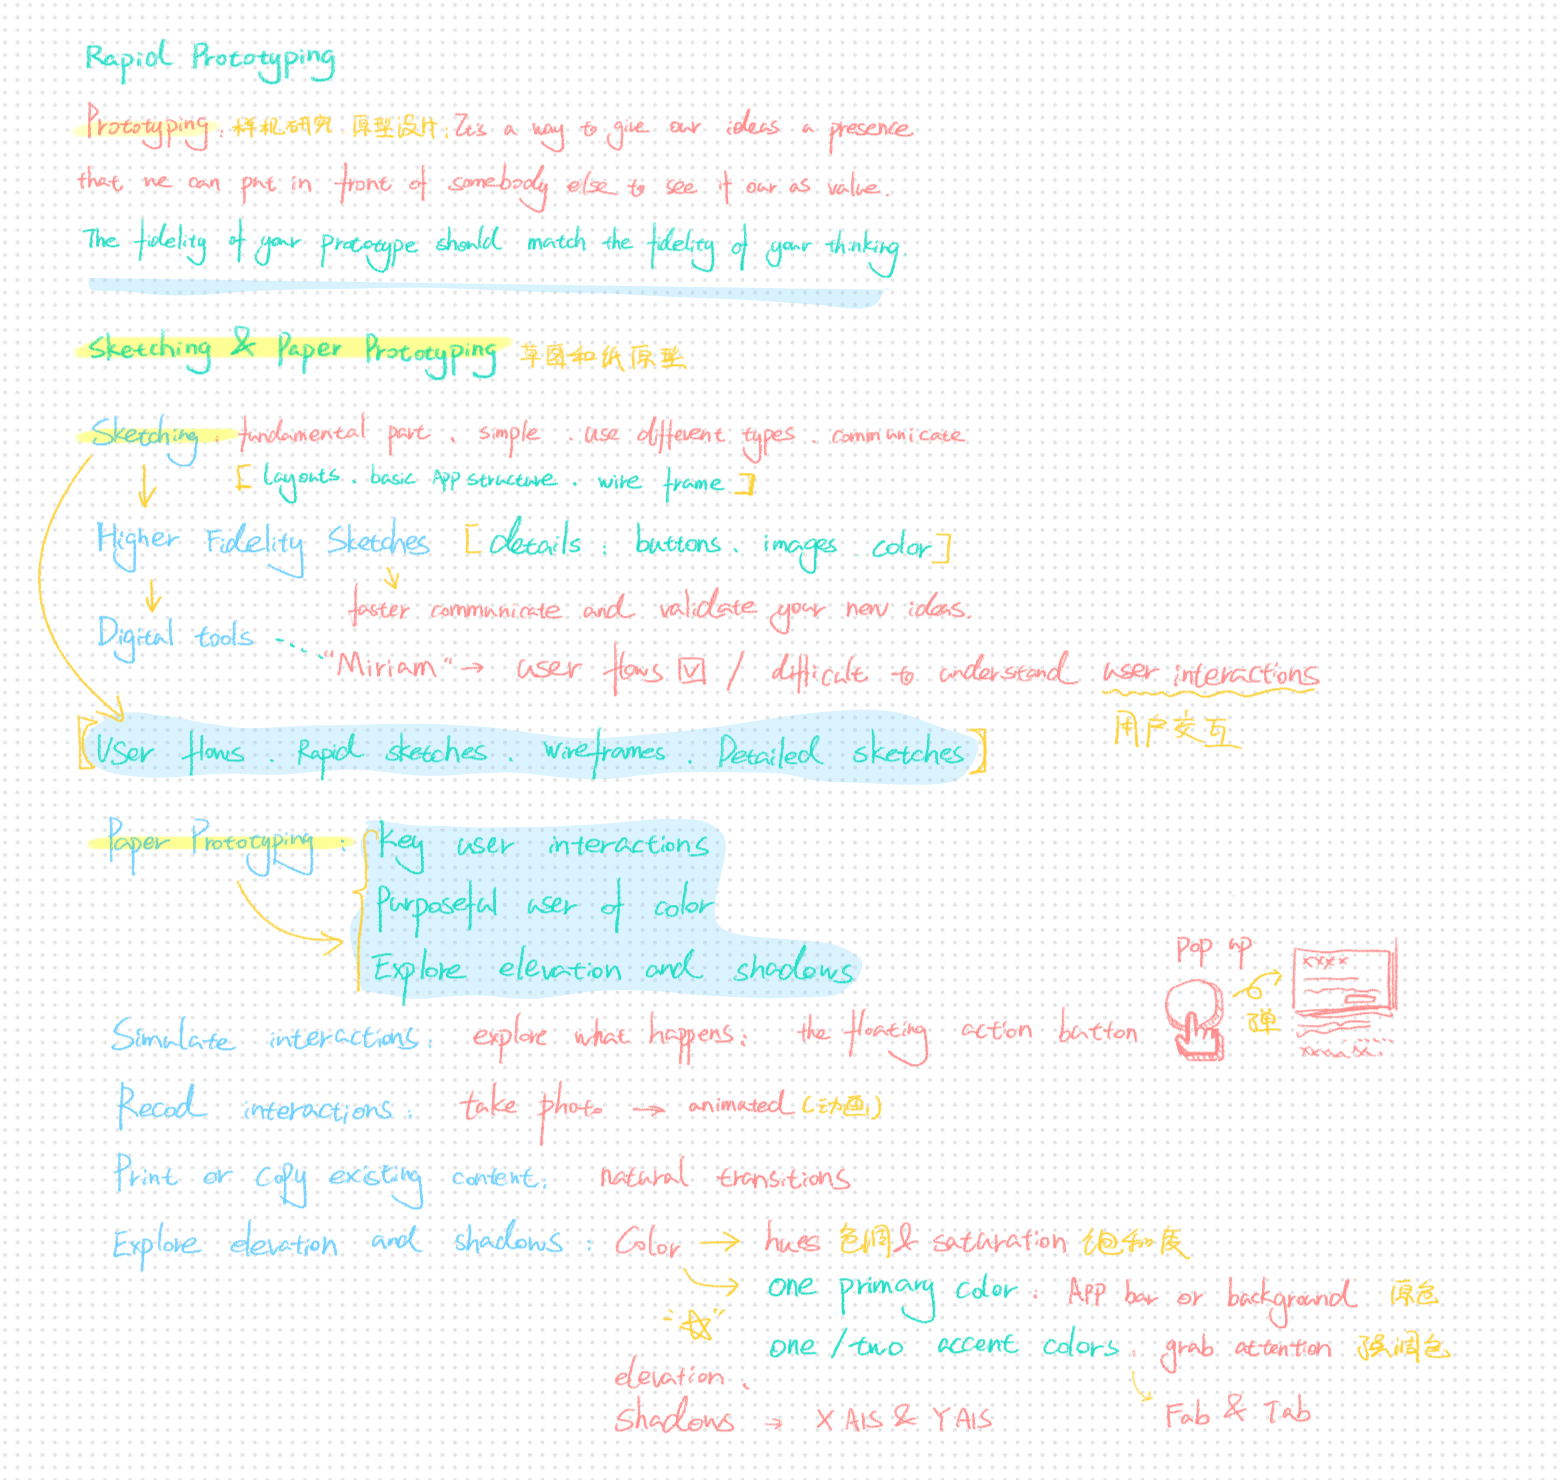 Rapid Prototyping
Prototyping: 样机研究 原型设计: It's a way to give our ideas a presence
that we can put in front of somebody else to see if our as value.
The fidelity of your prototype should match the fidelity of your thinking.
Sketching & Paper Prototyping 草图和纸原型
Sketching: fundamental part、simple、use different types、communicate
[layouts、basic App structure、wire frame]
Higher Fidelity Sketches [details: buttons、images color]
faster communicate and validate your new ideas.
Digital tools ---- "Miriam" → user flows ☑ / difficult to understand user interactions
用户交互
[User flows、Rapid sketches、wireframes、Detailed sketches]
Paper Prototyping: { Key user interactions
Purposeful user of color
Explore elevation and shadows
Pop up
xxxx
Simulate interactions: explore what happens: the floating action button
弹
xxxx xx..
Recod interactions: take photo → animated (动画)
Print or copy existing content: natural transitions
Explore elevation and shadows: Color → hues 色调 & saturation 饱和度
→ one primary color: App bar or background 原色
one/two accent colors: grab attention 强调色
elevation、
Shadows → X AIS & Y AIS
Fab & Tab